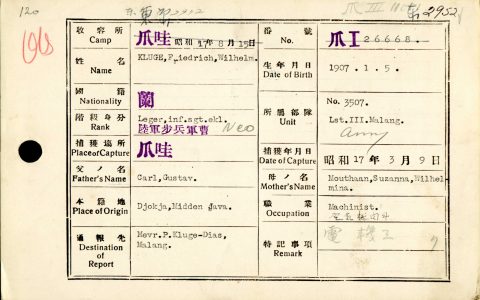 120
106
2952
收容所
Camp
爪哇 昭和 17年 8月 15日
番號
No.
爪I 26668.
姓名
Name
KLUGE,Friedrich,Wilhelm.
生年月日
Date of Birth
1907. 1. 5.
國籍
Nationality
蘭
所屬部隊
Unit
No. 3507.
Lst.III.Malang.
Army
階級身分
Rank
Leger,inf.sgt.ekl.
陸軍步兵軍曹
Neo
捕獲場所
Place of Capture
爪哇
捕獲年月日
Date of Capture
昭和 17年 3月 9日
父ノ名
Father's Name
Carl,Gustav.
母ノ名
Mother's Name
Mouthaan,Suzanna,Wilhel
mina.
本籍地
Place of Origin
Djokja,Midden Java.
職業
Occupation
Machinist.
通報先
Destination of
Report
Mevr.P.Kluge-Dias,
Malang.
特記事項
Remark
電機工